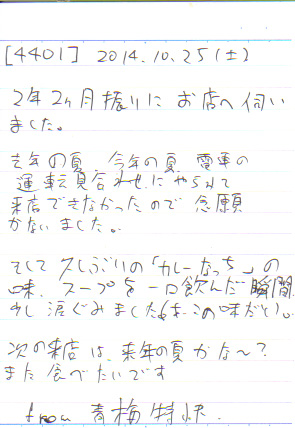 [4401] 2014.10.25(土)
2年2ヶ月振りにお店へ伺い
ました。
去年の夏 今年の夏 電車の
運転具合わせにやられて
来店できなかったので 念願
かないました。
そして 久しぶりの「カレーなっち」の
味、スープを一口飲んだ瞬間
少し涙ぐみました(は、この味だと)。
次の来店は、来年の夏かな〜?
また食べたいです
from 青梅特快.